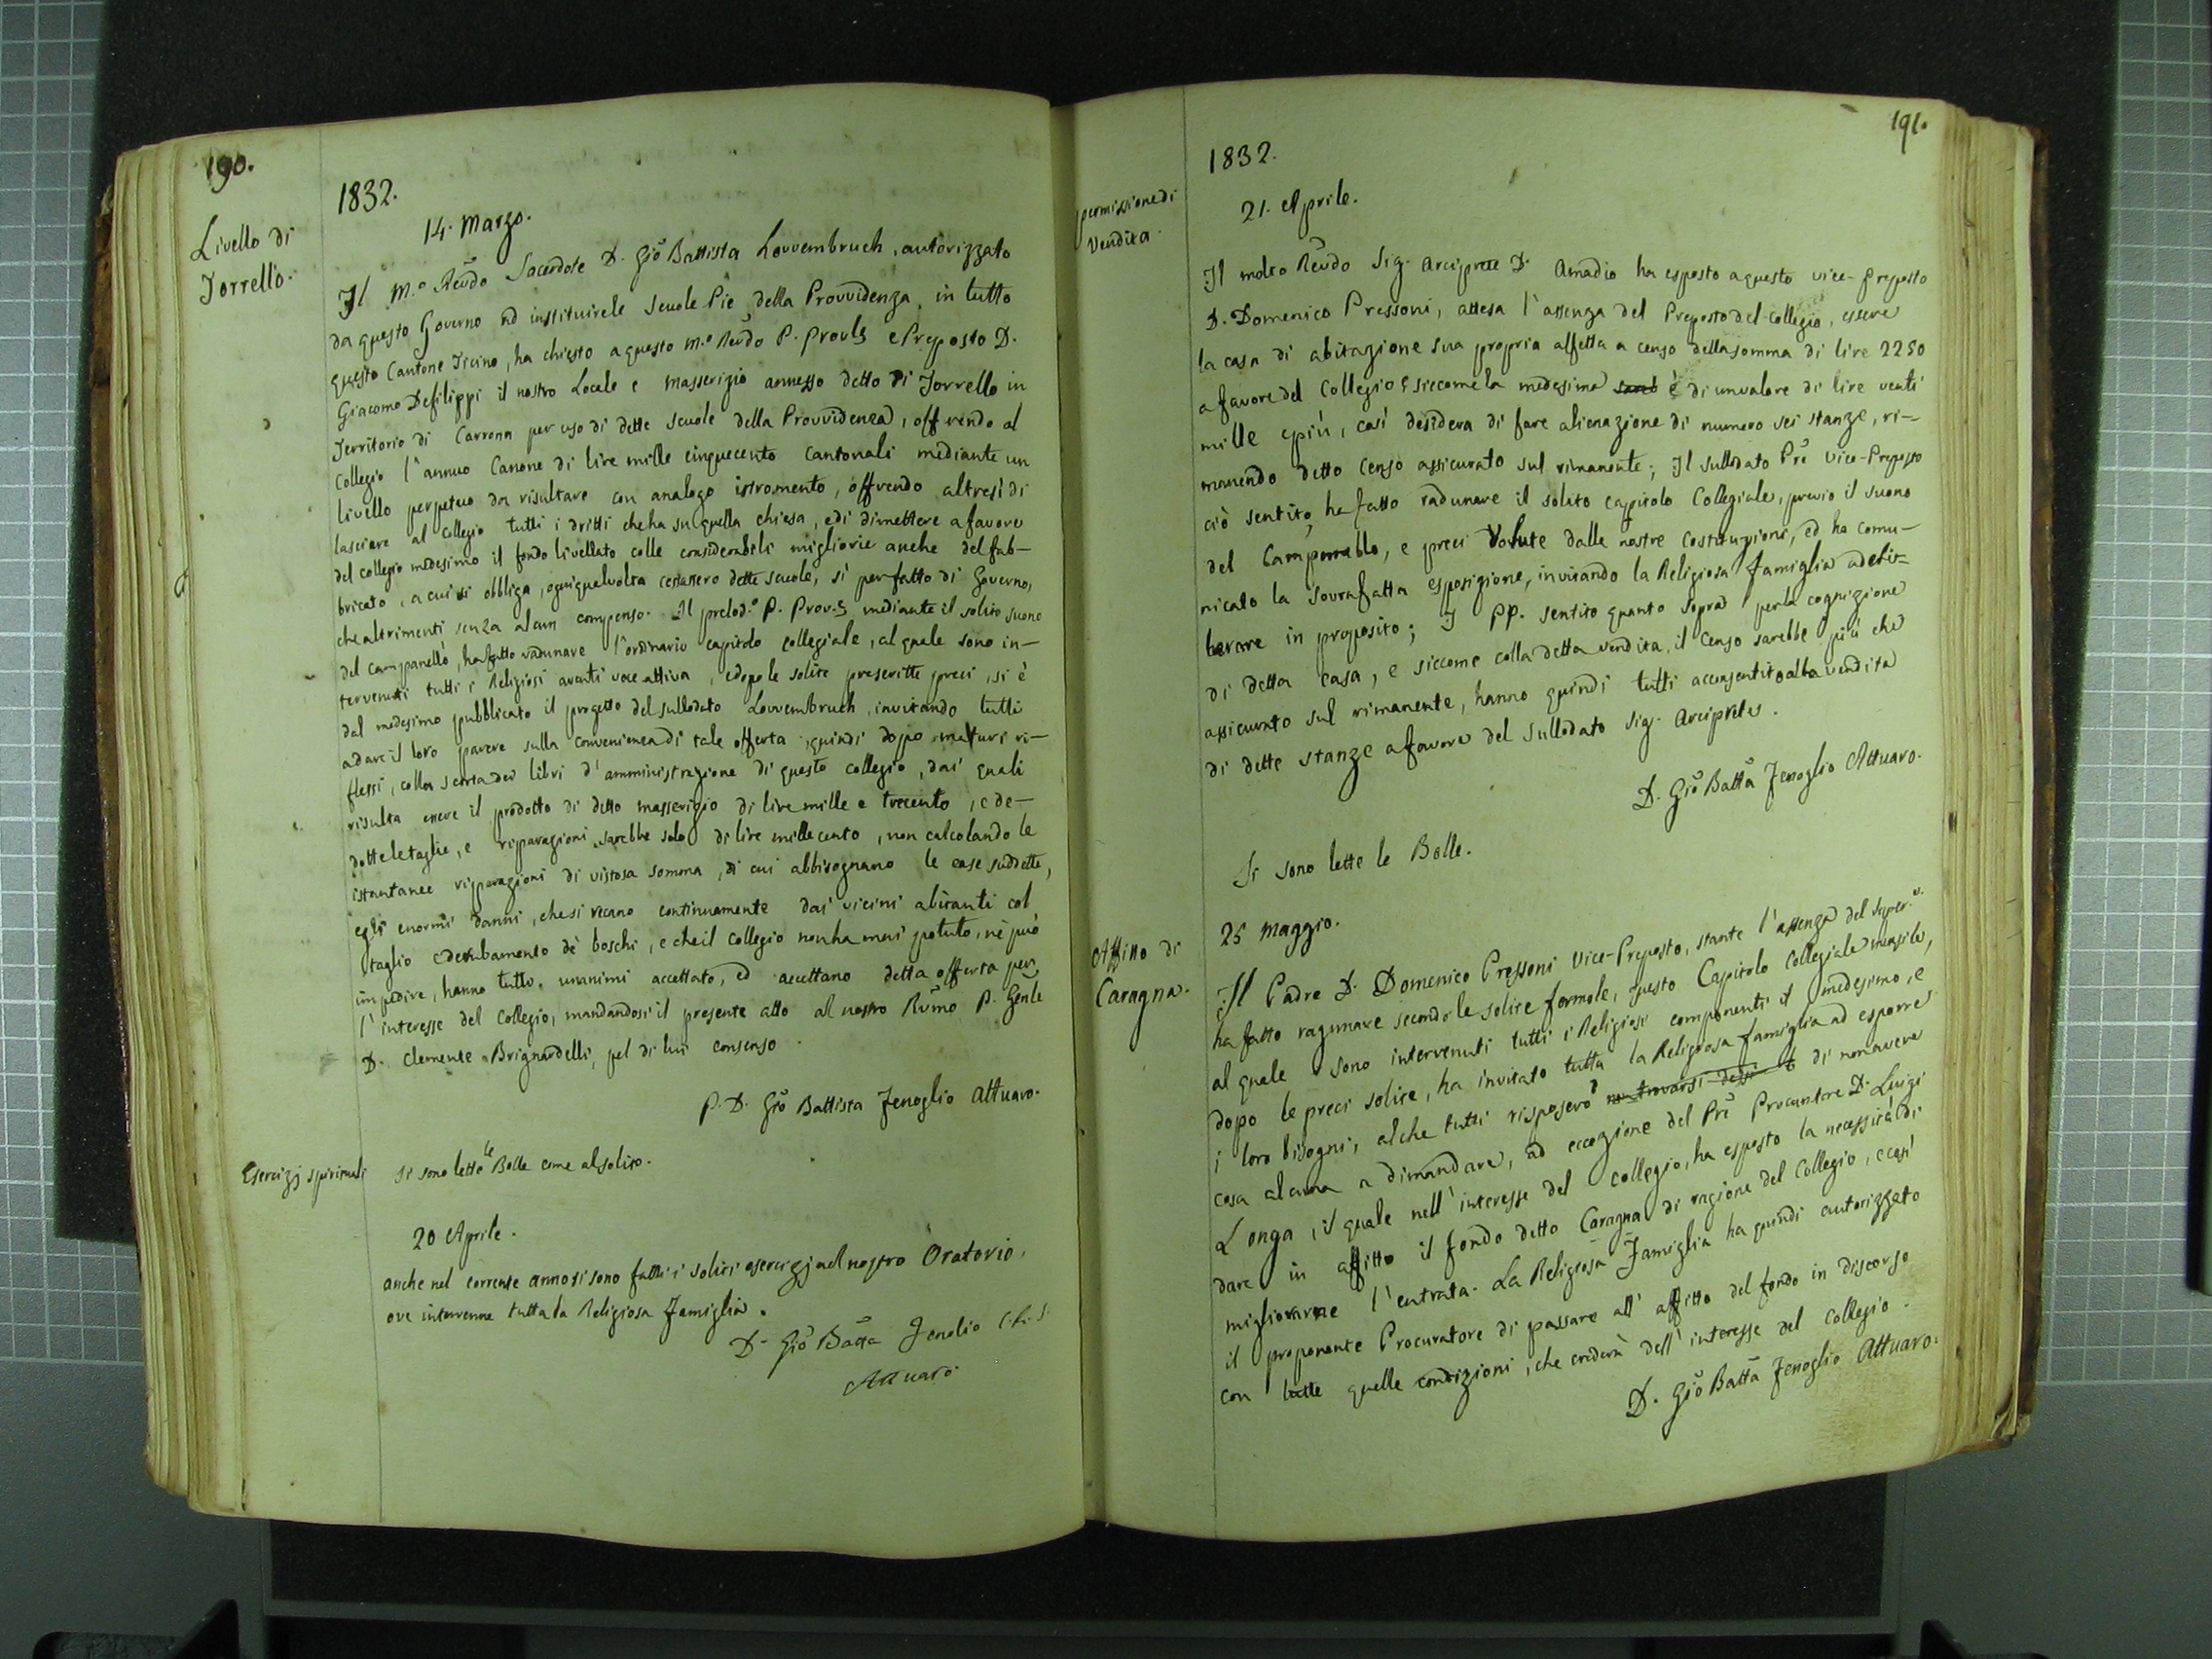 190.
Livello di
Torrello.
1832.
14. Marzo.
Il M.º Revdo Sacerdote D. Gio Battista Louvembruch, autorizzato
da questo Governo ad instituire le Scuole Pie della Provvidenza, in tutto
questo Cantone Ticino, ha chiesto a questo M.º Revdo P. Provle e Preposto D.
Giacomo Defilippi il nostro Locale e Masserizio annesso detto di Torrello in
Territorio di Carrona per uso di dette Scuole della Provvidenza, offrendo al
Collegio l'annuo Canone di lire mille cinquecento Cantonali mediante un
livello perpetuo da risultare con analogo istromento, offrendo altresì di
lasciare al Collegio tutti i dritti che ha su quella chiesa, e di dimettere a favore
del collegio medesimo il fondo livellato colle considerabili migliorie anche del fab-
bricato, a cui si obbliga, ogniqualvolta cessassero dette scuole, sì per fatto di Governo,
che altrimenti senza alcun compenso. Il prelod.º P. Prov.e mediante il solito suono
del campanello, ha fatto radunare l'ordinario capitolo collegiale, al quale sono in-
tervenuti tutti i Religiosi aventi voce attiva, e dopo le solite prescritte preci, si è
dal medesimo pubblicato il progetto del sullodato Louvembruch, invitando tutti
a dare il loro parere sulla convenienza di tale offerta; quindi dopo maturi ri-
flessi, colla scorta dei libri d'amministrazione di questo collegio, dai quali
risulta essere il prodotto di detto masserizio di lire mille e trecento, e de-
dotte le taglie, e riparazioni, sarebbe solo di lire mille cento, non calcolando le
istantanee riparazioni di vistosa somma, di cui abbisognano le case suddette,
e gli enormi danni, che si recano continuamente dai vicini abitanti col
taglio e derubamento de' boschi, e che il Collegio non ha mai potuto, nè può
impedire, hanno tutti, unanimi accettato, ed accettano detta offerta per
l'interesse del Collegio, mandandosi il presente atto al nostro Rvmo P. Genle
D. Clemente Brignardelli, pel di lui consenso.
P. D. Gio Battista Fenoglio Attuaro.
Esercizj spirituali
Si sono lette le Bolle come al solito.
20 Aprile.
Anche nel corrente anno si sono fatti i soliti esercizj nel nostro Oratorio,
ove intervenne tutta la Religiosa Famiglia.
D. Gio Batta Fenolio C.R.S.
Attuaro
191.
permissione di
Vendita.
1832.
21. Aprile.
Il molto Revdo Sig. Arciprete D. Amadio ha esposto a questo vice-Preposto
D. Domenico Pressoni, attesa l'assenza del Preposto del Collegio, essere
la casa di abitazione sua propria affetta a censo della somma di lire 2250
a favore del Collegio e siccome la medesima è di un valore di lire venti
mille e più, così desidera di fare alienazione di numero sei stanze, ri-
manendo detto censo assicurato sul rimanente; Il sullodato Pre Vice-Preposto
ciò sentito, ha fatto radunare il solito capitolo Collegiale, previo il suono
del Campanello, e preci Volute dalle nostre Costituzioni, ed ha comu-
nicato la sovrafatta esposizione, invitando la Religiosa Famiglia a deli-
berare in proposito; I PP. sentito quanto sopra per la cognizione
di detta casa, e siccome colla detta vendita, il Censo sarebbe più che
assicurato sul rimanente, hanno quindi tutti acconsentito alla vendita
di dette stanze a favore del Sullodato Sig. Arciprete.
D. Gio Batta Fenoglio Attuaro.
Si sono lette le Bolle.
Affitto di
Caragna.
25 Maggio.
Il Padre D. Domenico Pressoni Vice-Preposto, stante l'assenza del Super.e
ha fatto ragunare secondo le solite formole, questo Capitolo Collegiale mensile,
al quale sono intervenuti tutti i Religiosi componenti il medesimo, e
dopo le preci solite, ha invitato tutta la Religiosa famiglia ad esporre
i loro bisogni, al che tutti risposero di non avere
cosa alcuna a dimandare, ad eccezione del Pre Procuratore D. Luigi
Longa, il quale nell'interesse del collegio, ha esposto la necessità di
dare in affitto il fondo detto Caragna di ragione del Collegio, e così
migliorarne l'entrata. La Religiosa Famiglia ha quindi autorizzato
il proponente Procuratore di passare all'affitto del fondo in discorso
con tutte quelle condizioni, che crederà dell'interesse del Collegio.
D. Gio Batta Fenoglio Attuaro.